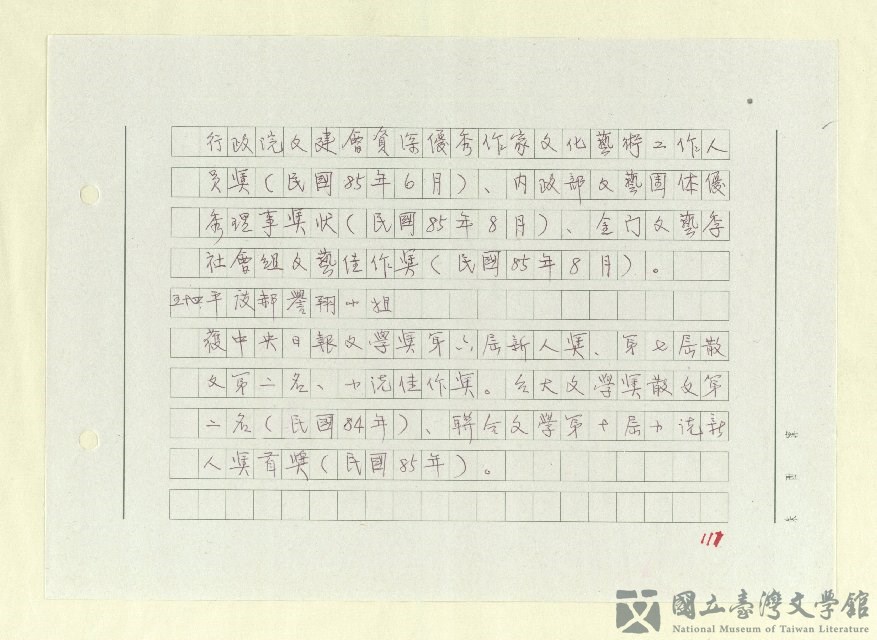 行政院文建會資深優秀作家文化藝術工作人
員獎(民國85年6月)、内政部文藝團体優
秀理事獎狀(民國85年8月)、金门文藝季
社會組文藝佳作獎(民國85年8月)。
平設郝譽翔小姐
獲中央日報文學獎第六屆新人獎、第七屆散
文第二名、小说佳作獎。台大文學獎散文第
二名(民國84年)、聯合文學第十屆小说新
人獎首獎(民國85年)。
117
國立臺灣文學館
National Museum of Taiwan Literature